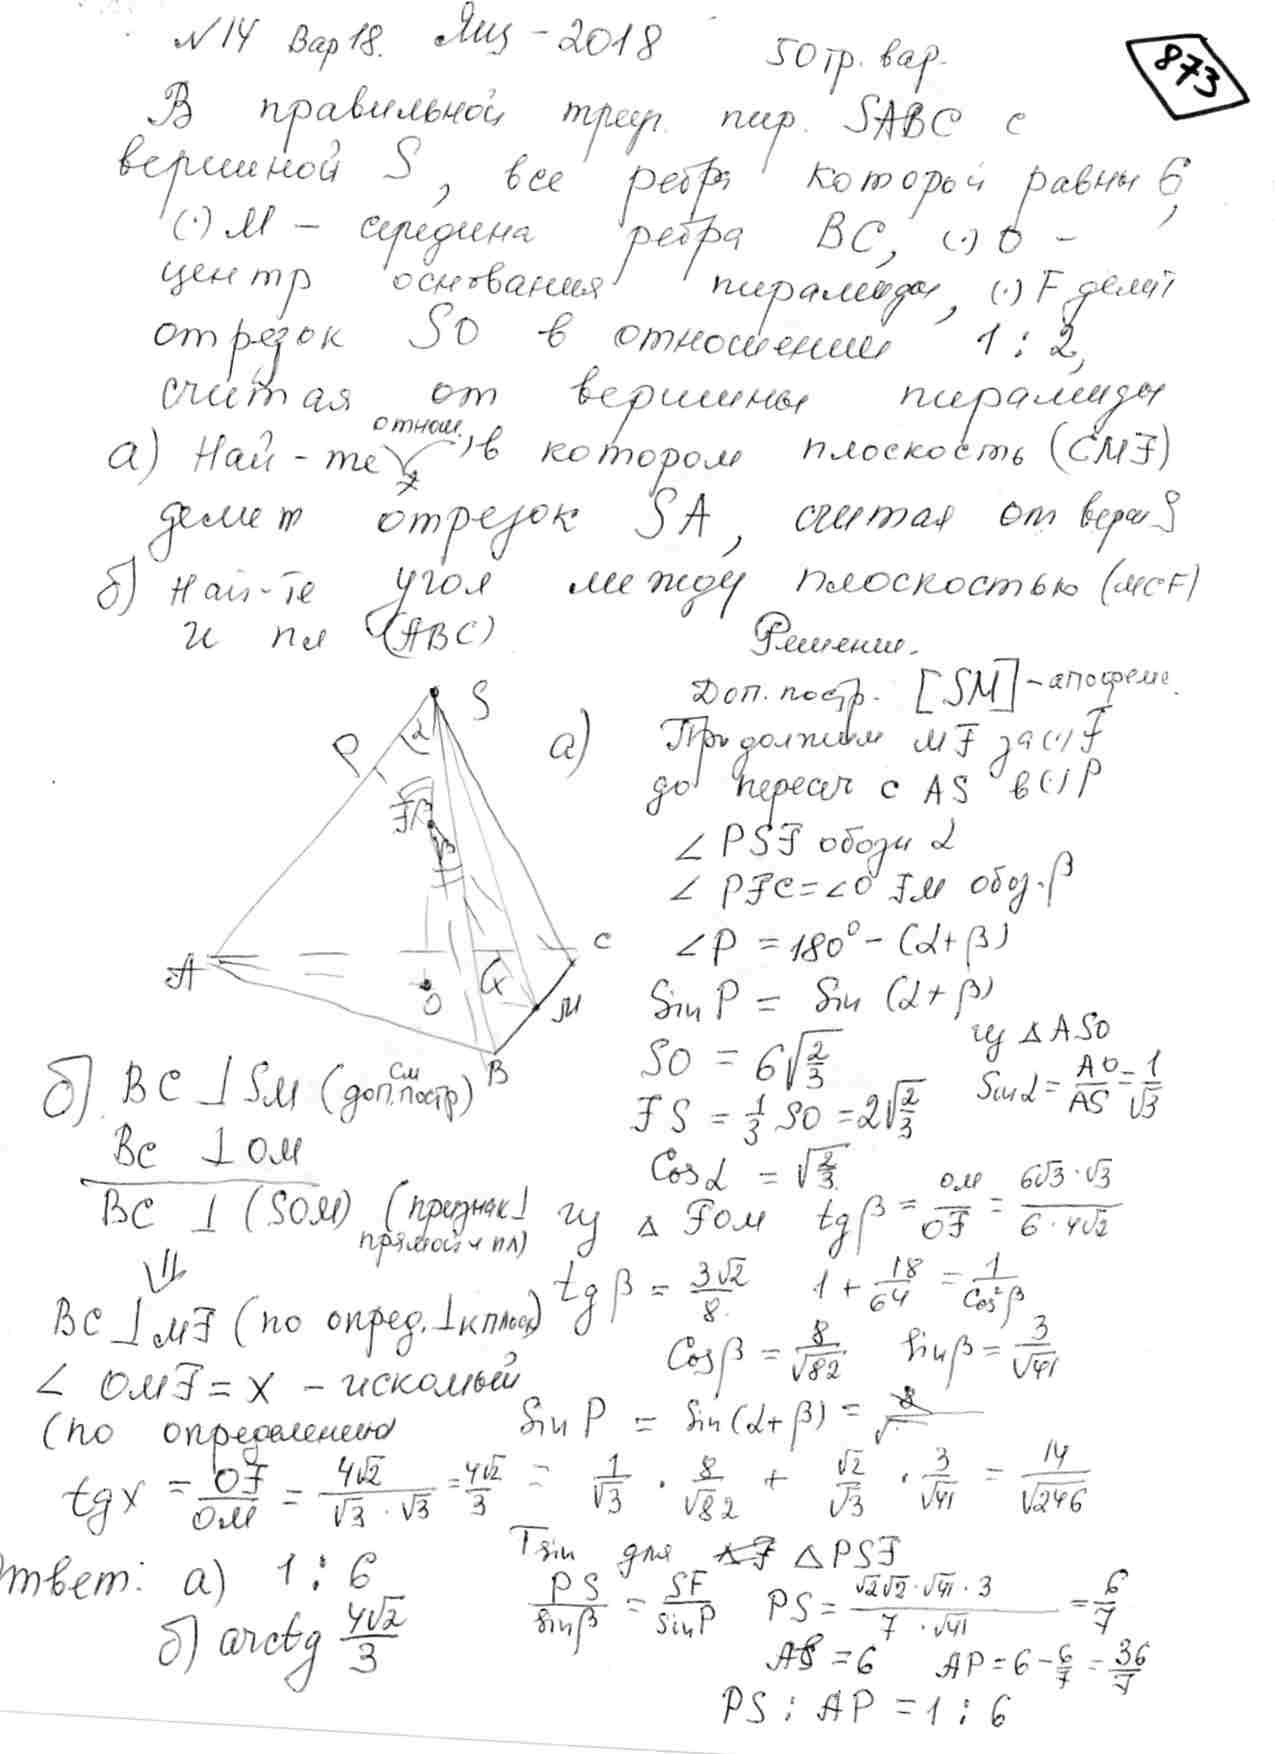 N14 Вар18. Ящ-2018 50тр. вар.
873
В правильной треуг. пир. SABC с
вершиной S, все ребра которой равны 6,
(·) M - середина ребра BC, (·) O -
центр основания пирамиды, (·) F делит
отрезок SO в отношении 1:2,
считая от вершины пирамиды
а) Най-те отнош., в котором плоскость (CMF)
делит отрезок SA, считая от верш S
б) Най-те угол между плоскостью (MCF)
и пл (ABC)
Решение.
Доп. постр. [SM] - апофема.
а) Продолжим MF за (·) F
до пересеч с AS в (·) P
∠PSF обозн α
∠PFC = ∠OFM обоз. β
∠P = 180° - (α+β)
Sin P = Sin (α+β)
SO = 6√(2/3)
из △ASO
Sin α = AO/AS = 1/√3
FS = 1/3 SO = 2√(2/3)
Cos α = √(2/3)
из △FOM tg β = OM/OF = 6√3·√3/6·4√2
tg β = 3√2/8 1 + 18/64 = 1/Cos²β
Cos β = 8/√82 Sin β = 3/√41
Sin P = Sin (α+β) =
= 1/√3 · 8/√82 + √2/√3 · 3/√41 = 14/√246
Tsin для △PSF
PS/sinβ = SF/sinP PS = √2√2·√41·3/7·√41 = 6/7
AS = 6 AP = 6 - 6/7 = 36/7
PS : AP = 1 : 6
S
P
α
F
β
A
O
x
C
M
B
б) BC ⊥ SM (см доп. постр)
BC ⊥ OM
BC ⊥ (SOM) (признак ⊥ прямой и пл)
⇓
BC ⊥ MF (по опред. ⊥ к плоск)
∠OMF = x - искомый
(по определению
tg x = OF/OM = 4√2/√3·√3 = 4√2/3
Ответ: а) 1:6
б) arctg 4√2/3